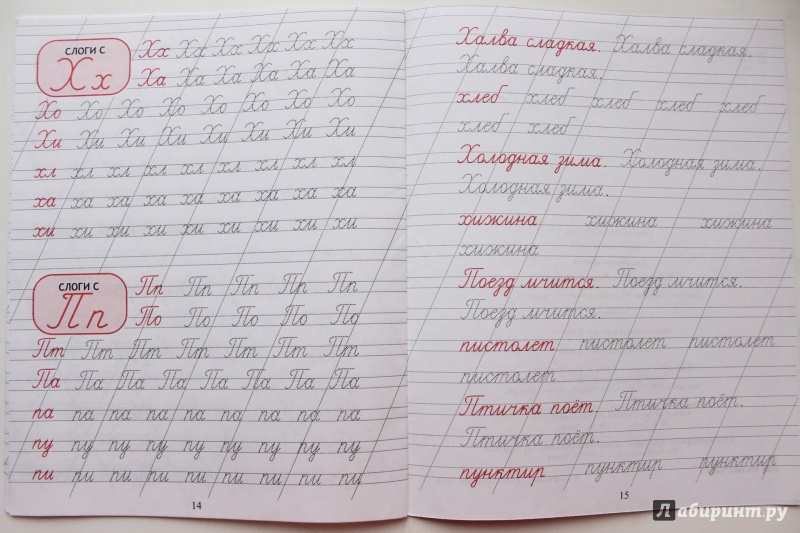 СЛОГИ С
Хх
Хх Хх Хх Хх Хх Хх
Ха Ха Ха Ха Ха Ха
Хо Хо Хо Хо Хо Хо Хо Хо
Хи Хи Хи Хи Хи Хи Хи Хи
хл хл хл хл хл хл хл хл хл
ха ха ха ха ха ха ха ха ха
хи хи хи хи хи хи хи хи хи
СЛОГИ С
Пп
Пп Пп Пп Пп Пп
По По По По По
Пт Пт Пт Пт Пт Пт Пт
Па Па Па Па Па Па Па Па
па па па па па па па па па
пу пу пу пу пу пу пу пу пу
пи пи пи пи пи пи пи пи пи
14
Халва сладкая. Халва сладкая.
Халва сладкая.
хлеб хлеб хлеб хлеб хлеб
хлеб хлеб
Холодная зима. Холодная зима.
Холодная зима.
хижина хижина хижина
хижина
Поезд мчится. Поезд мчится.
Поезд мчится.
пистолет пистолет пистолет
пистолет
Птичка поёт. Птичка поёт.
Птичка поёт.
пунктир пунктир пунктир
15
Лабиринт.ру